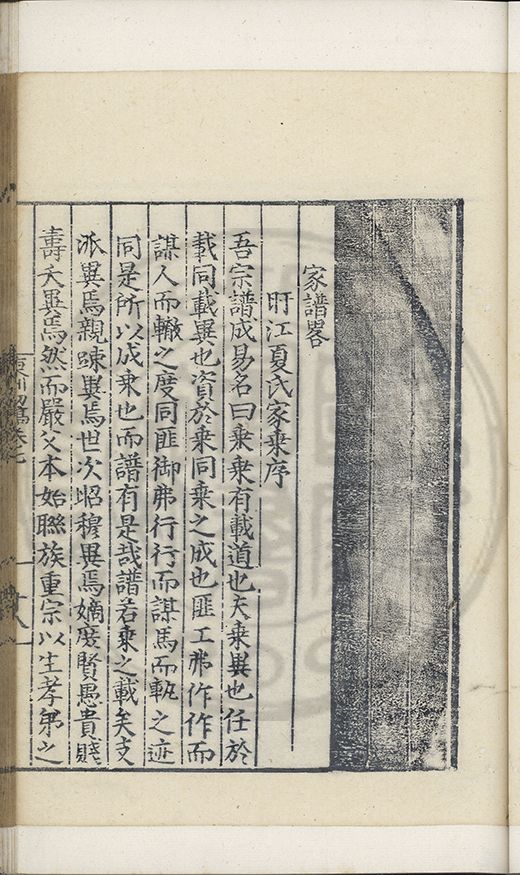 家譜畧
旴江夏氏家乘序
吾宗譜成易名曰乘乘有載道也夫乘異也任於
載同載異也資於乘同乘之成也匪工弗作作而
謀人而轍之度同匪御弗行行而謀馬而軌之迹
同是所以成乘也而譜有是哉譜若乘之載矣支
派異焉親踈異焉世次昭穆異焉嫡庶賢愚貴賤
壽夭異焉然而嚴父本始聮族重宗以生孝弟之
卷之七